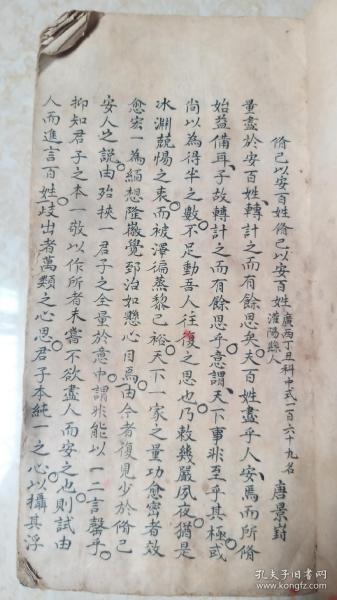 脩己以安百姓脩己以安百姓 廣西丁丑科中式一百六十九名 灌陽縣人 唐景封
量盡於安百姓、轉計之而有餘思矣夫百姓盡乎人、安焉而所脩
始益備耳、子故轉計之而有餘思乎、意謂天下事非至乎其極或
尚以為得半之數不足動吾人往復之思也乃敕幾嚴夙夜猶是
冰淵兢惕之衷而被澤徧蒸黎已裕天下一家之量功愈密者效
愈宏一為緬想隆徽覺郅治如懸心目焉由今者復見少於脩己
安人之說由殆挾一君子之全量於意中謂非能以一二言罄乎
抑知君子之本一敬以作所者未嘗不欲盡人而安之也則試由
人而進言百姓歧出者萬類之心思君子本純一之心以攝其浮
孔夫子旧书网
www.kongfz.com